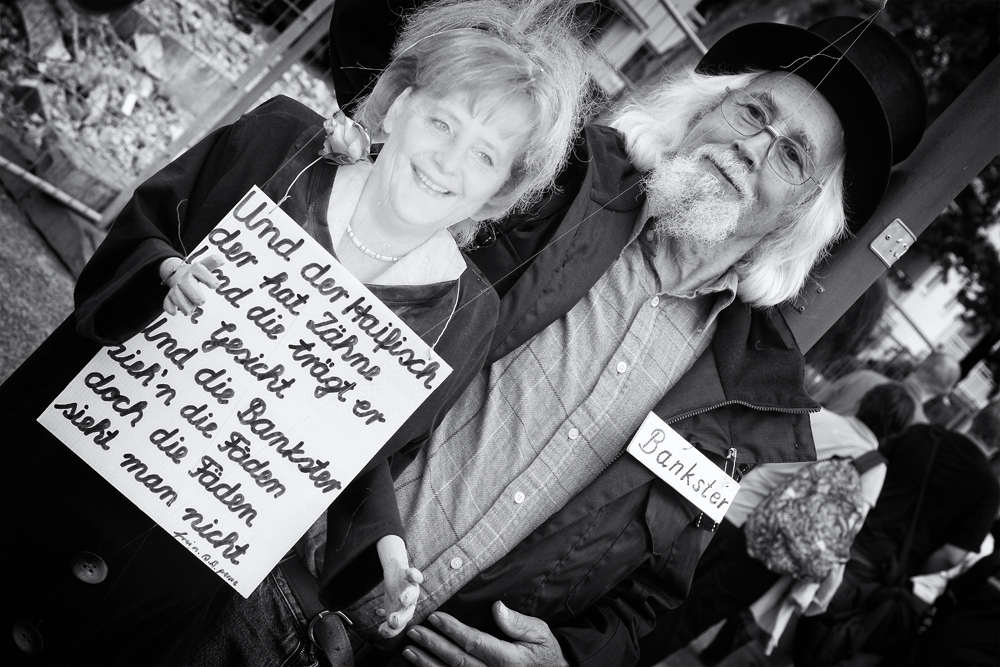 Und der Haifisch
der hat Zähne
und die trägt er
Gesicht
Und die Bankster
zieh'n die Fäden
doch die Fäden
sieht man nicht
Bankster